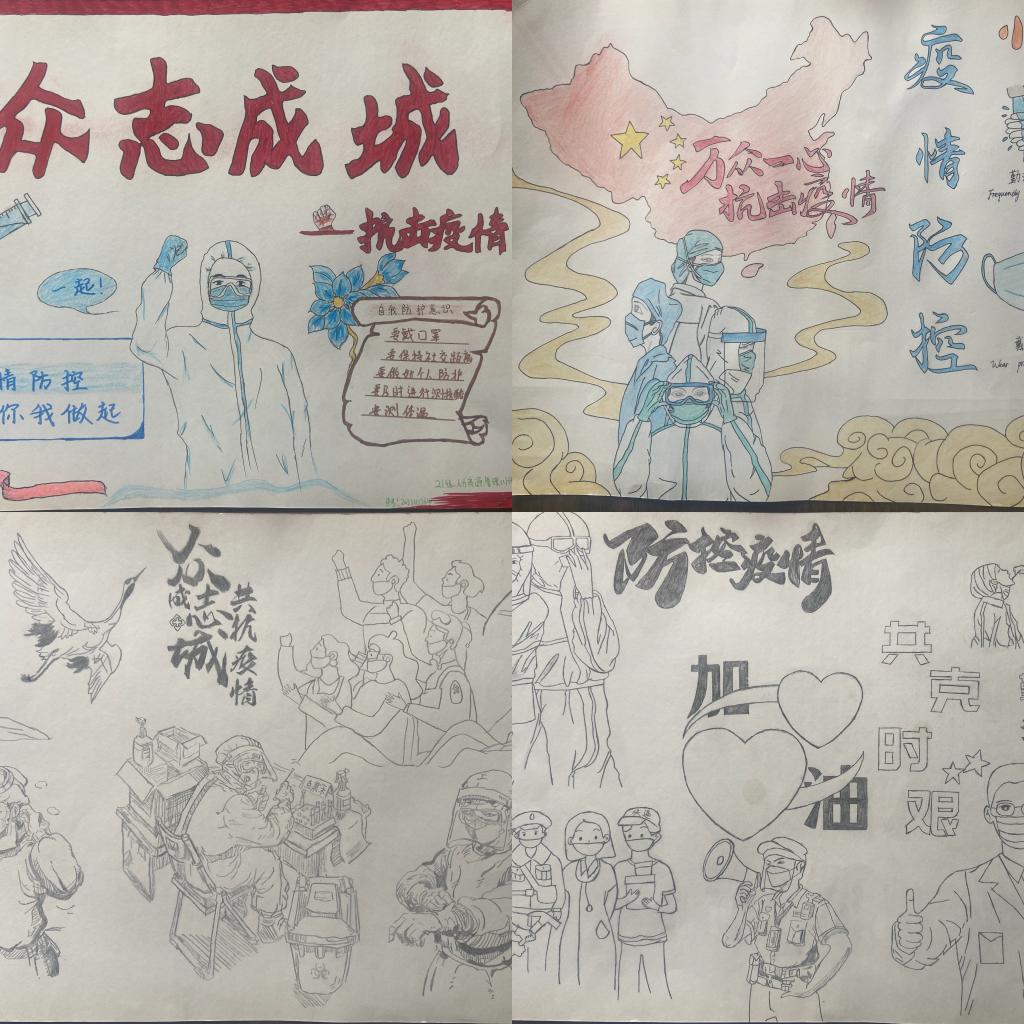 众志成城
抗击疫情
一起！
情防控
你我做起
自我防护意识
要戴口罩
要保持社交距离
要做好个人防护
要及时进行测核酸
要测体温
万众一心
抗击疫情
疫情防控
勤
Frequently
戴
Wear
众志成城
共抗疫情
防控疫情
加油
共克时艰